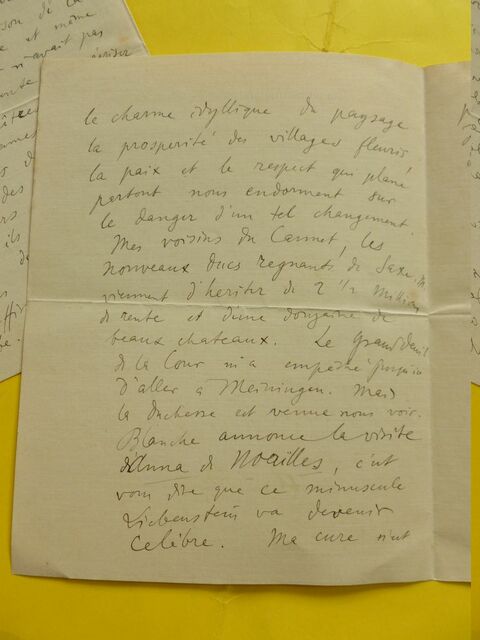 son de la
et même
n'avait pas
le charme idyllique du paysage
la prosperité des villages fleuris
la paix et le respect qui plane
partout nous endorment sur
le danger d'un tel changement.
Mes voisins du Cannet, les
nouveaux ducs regnants de Saxe M
viennent d'hériter de 2 1/2 Million
de rente et d'une dougaine de
beaux chateaux. Le Grand deuil
de la Cour m'a empeché jusqu'ici
d'aller a Meiningen. Mais
la duchesse est venue nous voir.
Blanche annonce la visite
d'Anna de Noailles, c'est
vous dire que ce minuscule
Liebenstein va devenir
celèbre. Ma cure n'est